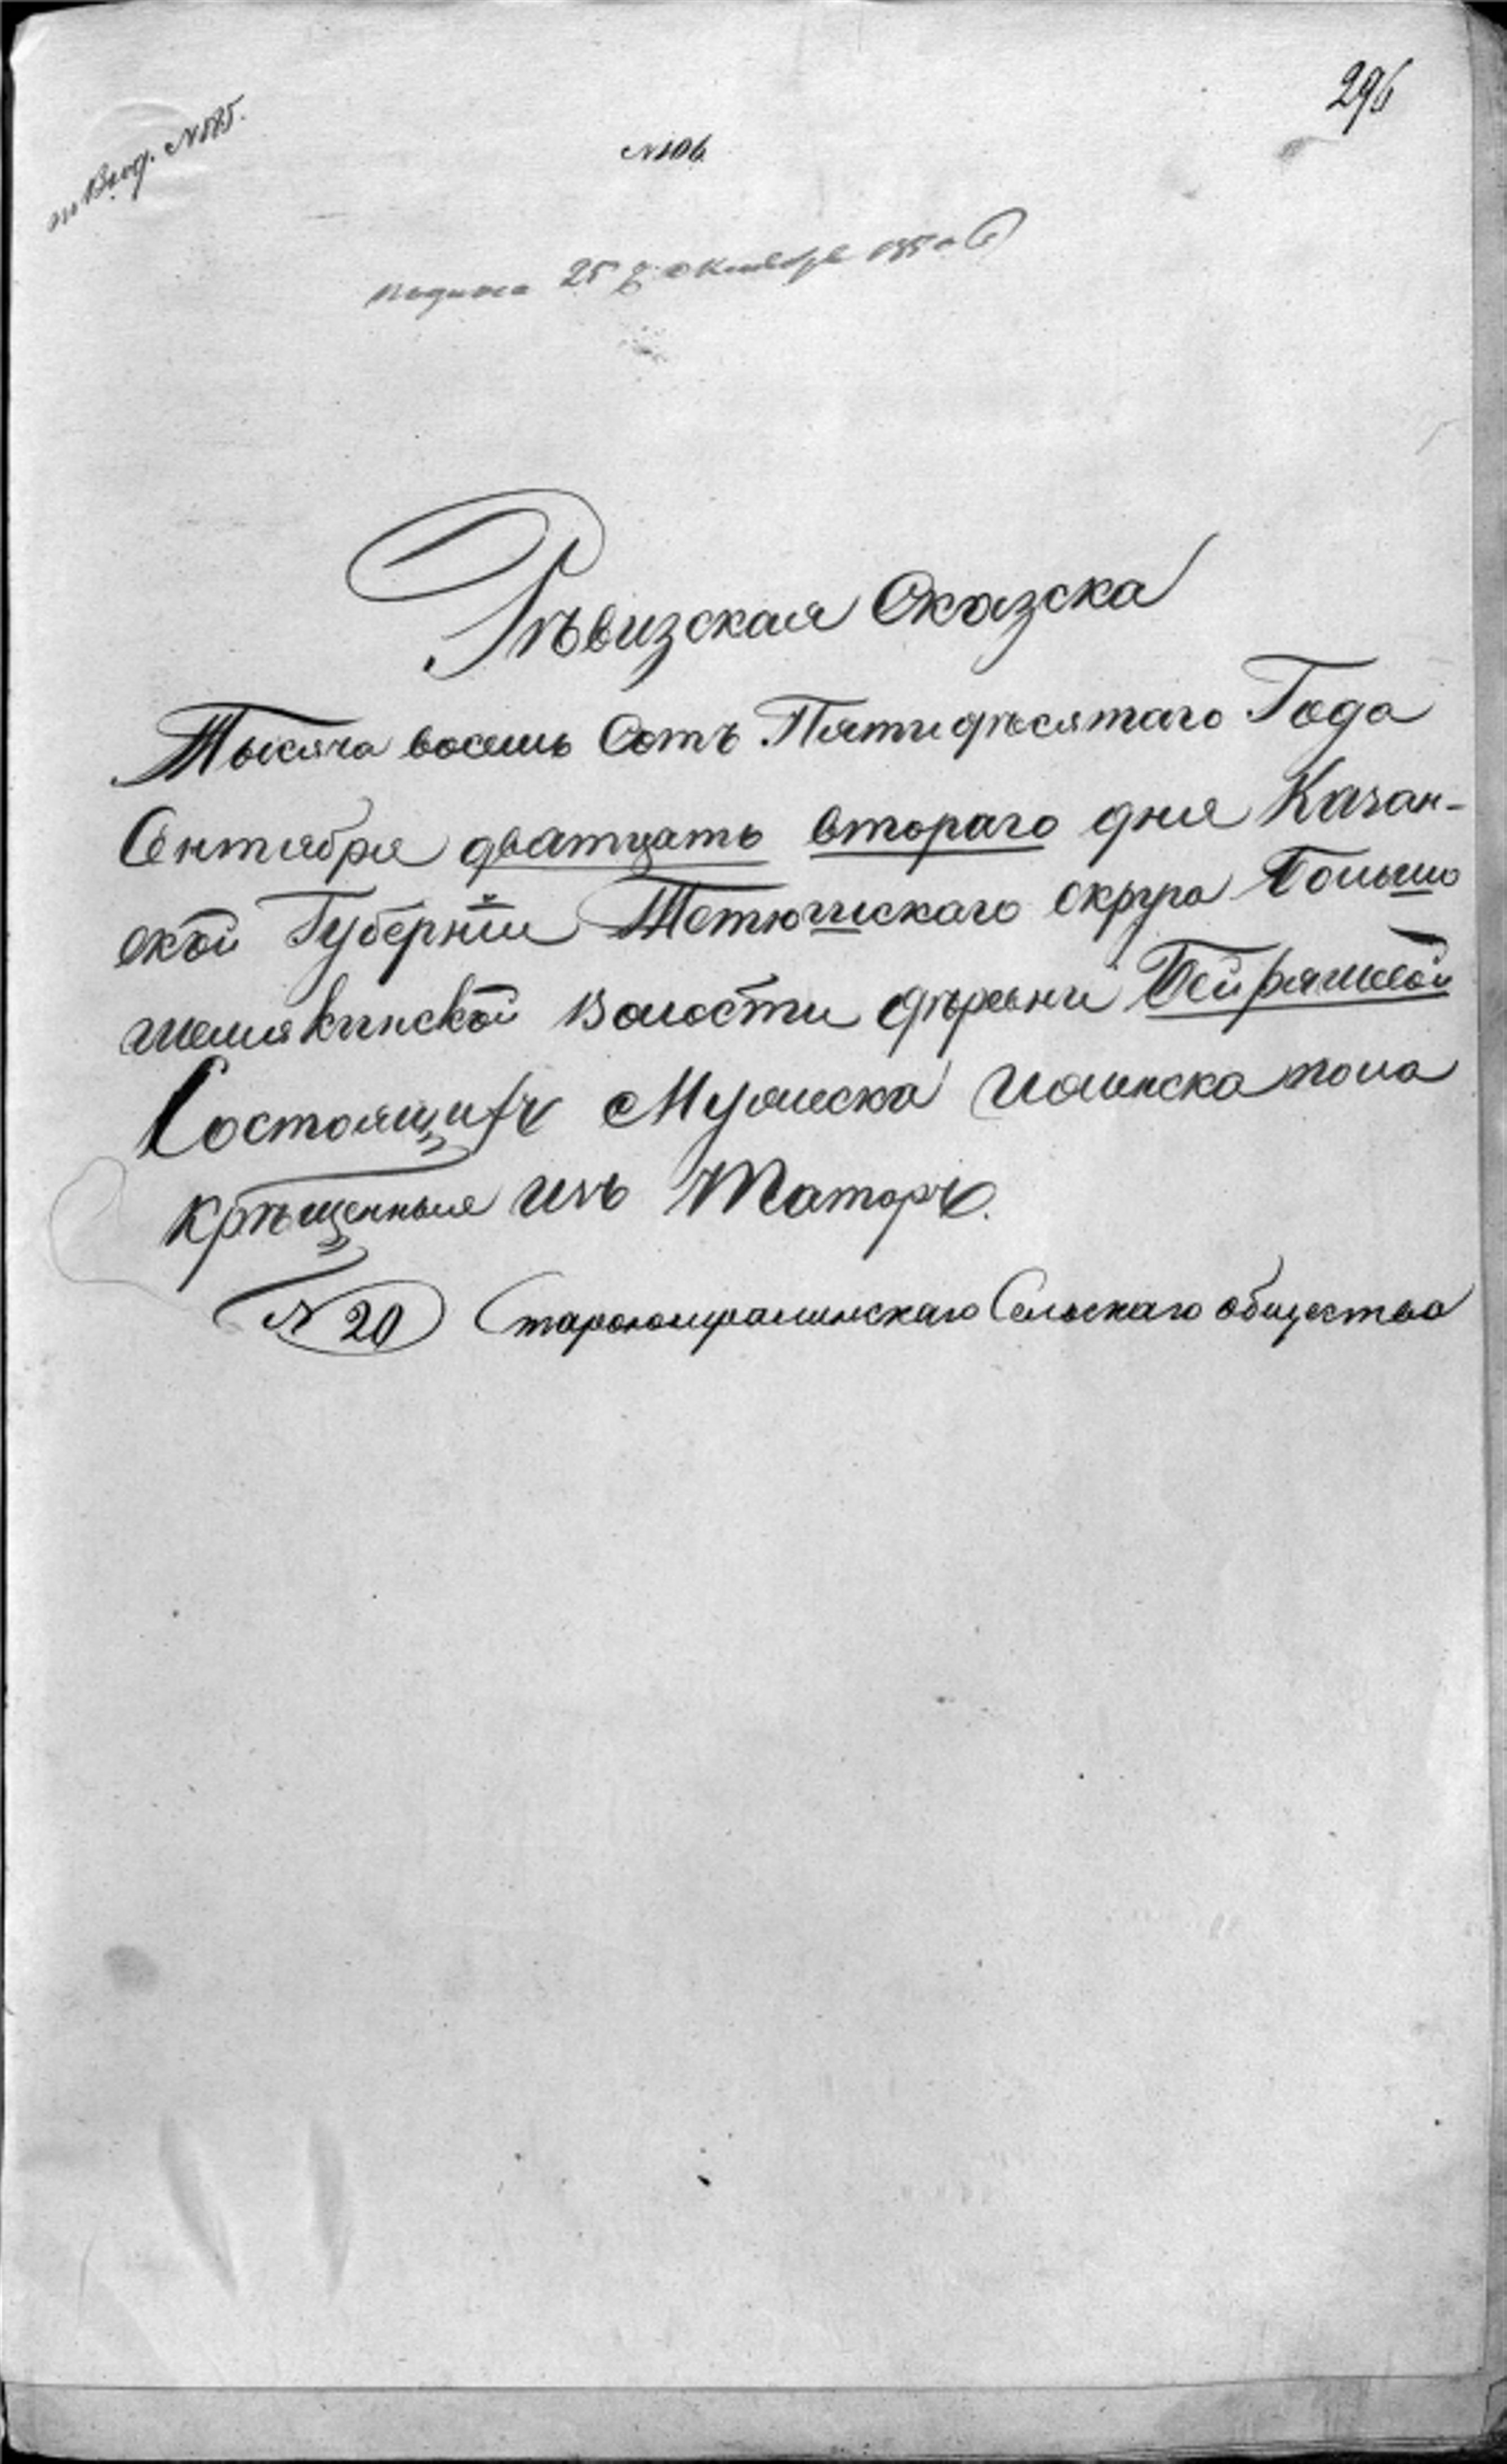 296
по Вход. № 585.
№ 106.
Подана 25 октября 1850 г
Рѣвизская Сказска
Тысяча восемь Сотъ Пятидѣсятаго Года
Сентября дватцать втораго дня Казан-
ской Губерніи Тетюшскаго округа Больше
шемякинской Волости дѣревни Бейряшевой
Состоящихъ Мужеска иженска пола
крѣщенныя изъ Татаръ.
№ 20 Сельскаго общества